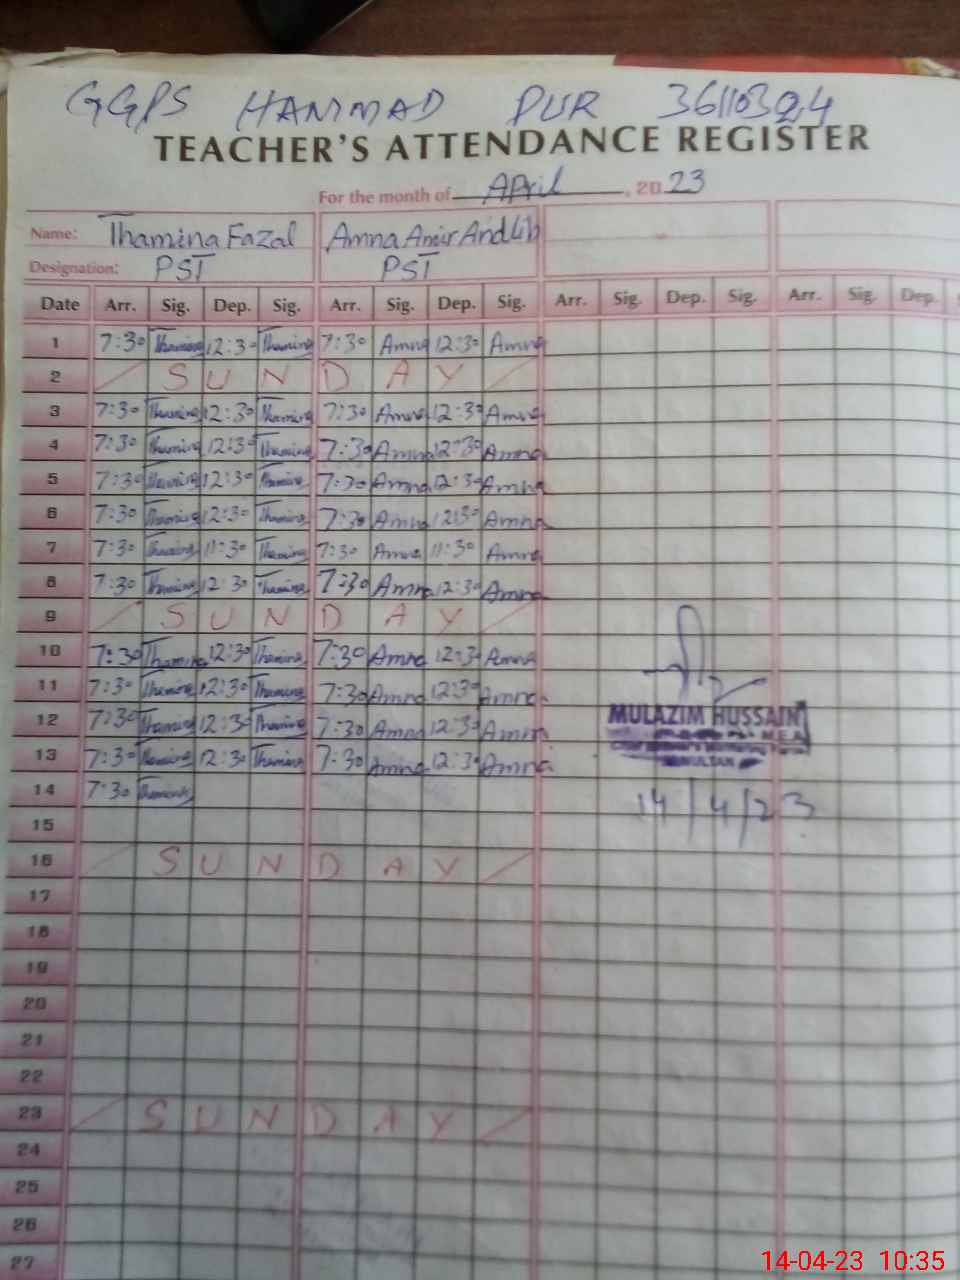 GGPS HAMMAD PUR 36110324
TEACHER'S ATTENDANCE REGISTER
For the month of April, 2023
Name: Thamina Fazal Amna Amir Andlib
Designation: PST PST
Date Arr. Sig. Dep. Sig. Arr. Sig. Dep. Sig. Arr. Sig. Dep. Sig. Arr. Sig. Dep.
1 7:30 Thamina 12:30 Thamina 7:30 Amna 12:30 Amna
2 SUNDAY
3 7:30 Thamina 12:30 Thamina 7:30 Amna 12:30 Amna
4 7:30 Thamina 12:30 Thamina 7:30 Amna 12:30 Amna
5 7:30 Thamina 12:30 Thamina 7:30 Amna 12:30 Amna
6 7:30 Thamina 12:30 Thamina 7:30 Amna 12:30 Amna
7 7:30 Thamina 11:30 Thamina 7:30 Amna 11:30 Amna
8 7:30 Thamina 12:30 Thamina 7:30 Amna 12:30 Amna
9 SUNDAY
10 7:30 Thamina 12:30 Thamina 7:30 Amna 12:30 Amna
11 7:30 Thamina 12:30 Thamina 7:30 Amna 12:30 Amna
12 7:30 Thamina 12:30 Thamina 7:30 Amna 12:30 Amna
13 7:30 Thamina 12:30 Thamina 7:30 Amna 12:30 Amna
14 7:30 Thamina
15
16 SUNDAY
17
18
19
20
21
22
23 SUNDAY
24
25
26
27
MULAZIM HUSSAIN
M.E.A
MULTAN
14/4/23
14-04-23 10:35